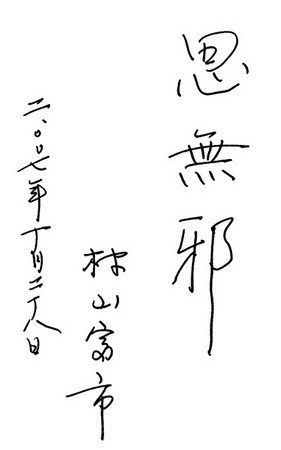 思無邪
村山富市
二〇〇七年十月二十八日